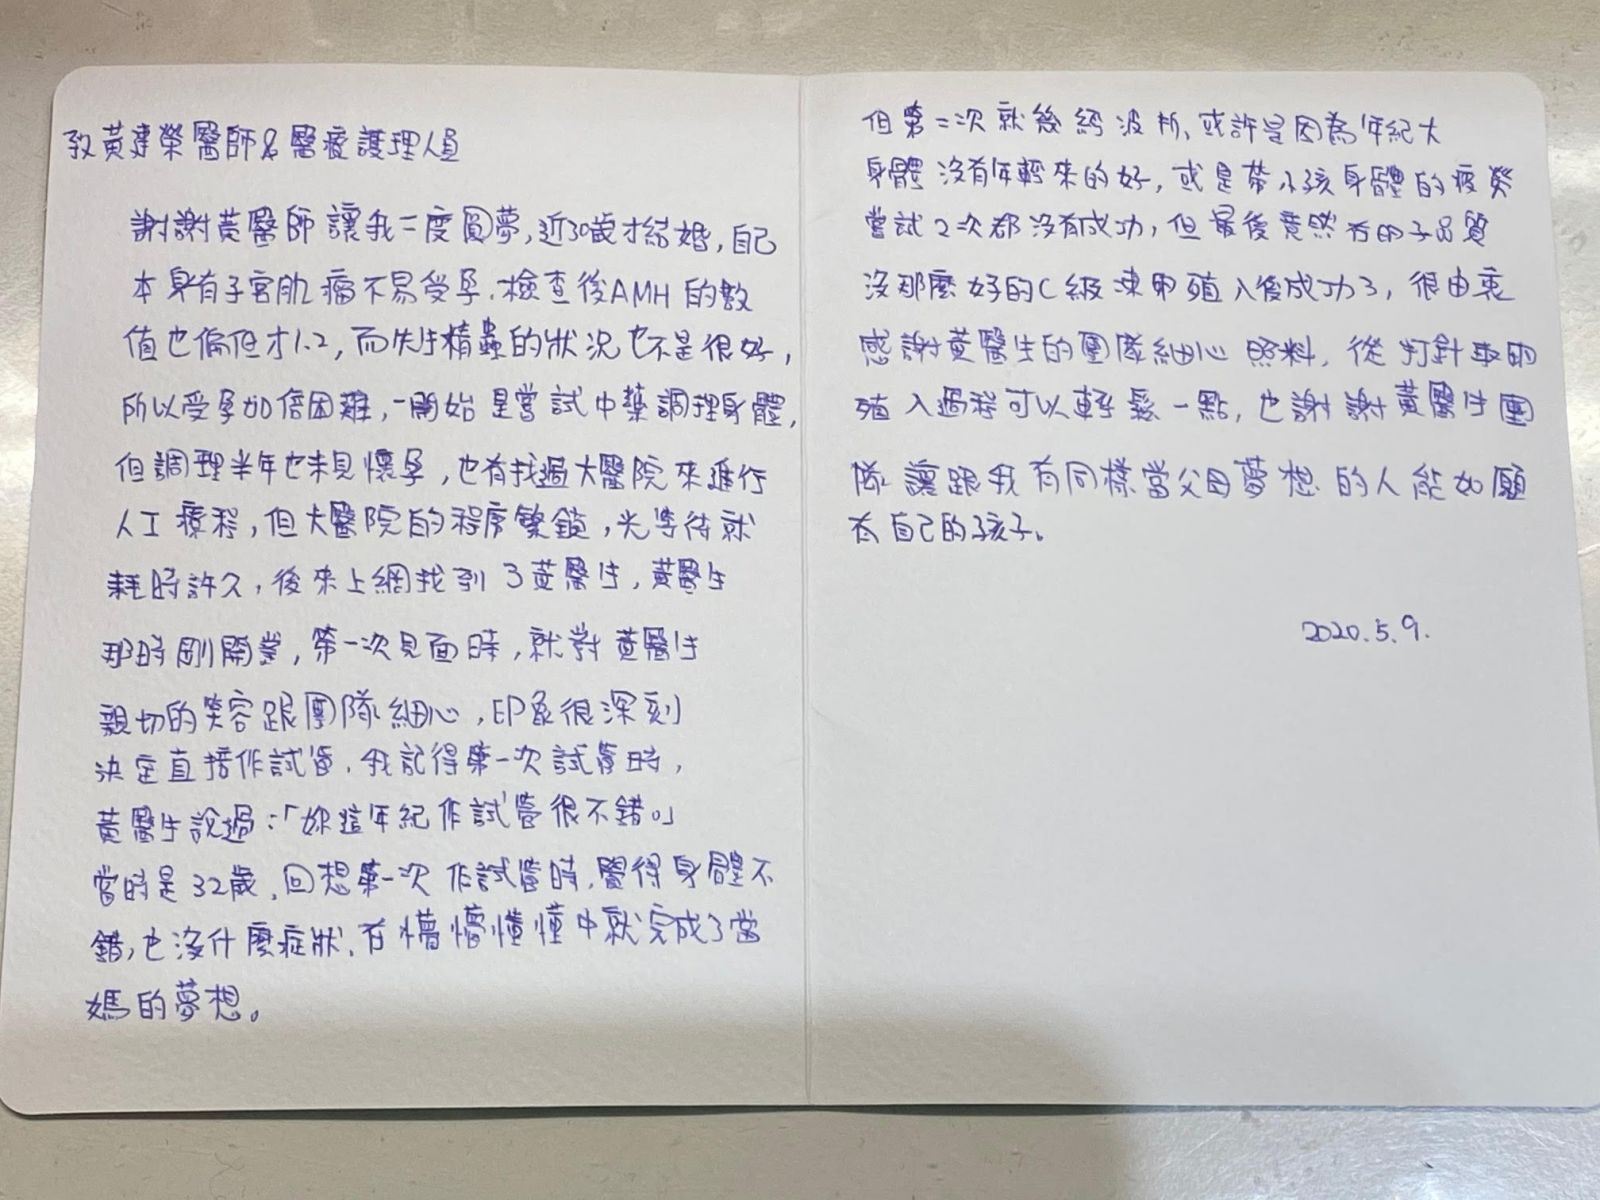 致黃建榮醫師&醫療護理人員
謝謝黃醫師讓我二度圓夢,近30歲才結婚,自己
本身有子宮肌瘤不易受孕.檢查後AMH的數
值也偏低才1.2,而先生精蟲的狀況也不是很好,
所以受孕加倍困難,一開始是嘗試中藥調理身體,
但調理半年也未見懷孕,也有找過大醫院來進行
人工療程,但大醫院的程序繁鎖,光等待就
耗時許久,後來上網找到了黃醫生,黃醫生
那時剛開業,第一次見面時,就對黃醫生
親切的笑容跟團隊細心,印象很深刻
決定直接作試管.我記得第一次試管時,
黃醫生說過:「妳這年紀作試管很不錯。」
當時是32歲,回想第一次作試管時,覺得身體不
錯,也沒什麼症狀.在懵懵懂懂中就完成了當
媽的夢想。
但第二次就幾經波折,或許是因為年紀大
身體沒有年輕來的好,或是帶小孩身體的疲勞
嘗試2次都沒有成功,但最後竟然在卵子品質
沒那麼好的C級凍卵殖入後成功了,很由衷
感謝黃醫生的團隊細心照料,從打針取卵
殖入過程可以輕鬆一點,也謝謝黃醫生團
隊讓跟我有同樣當父母夢想的人能如願
有自己的孩子。
2020.5.9.